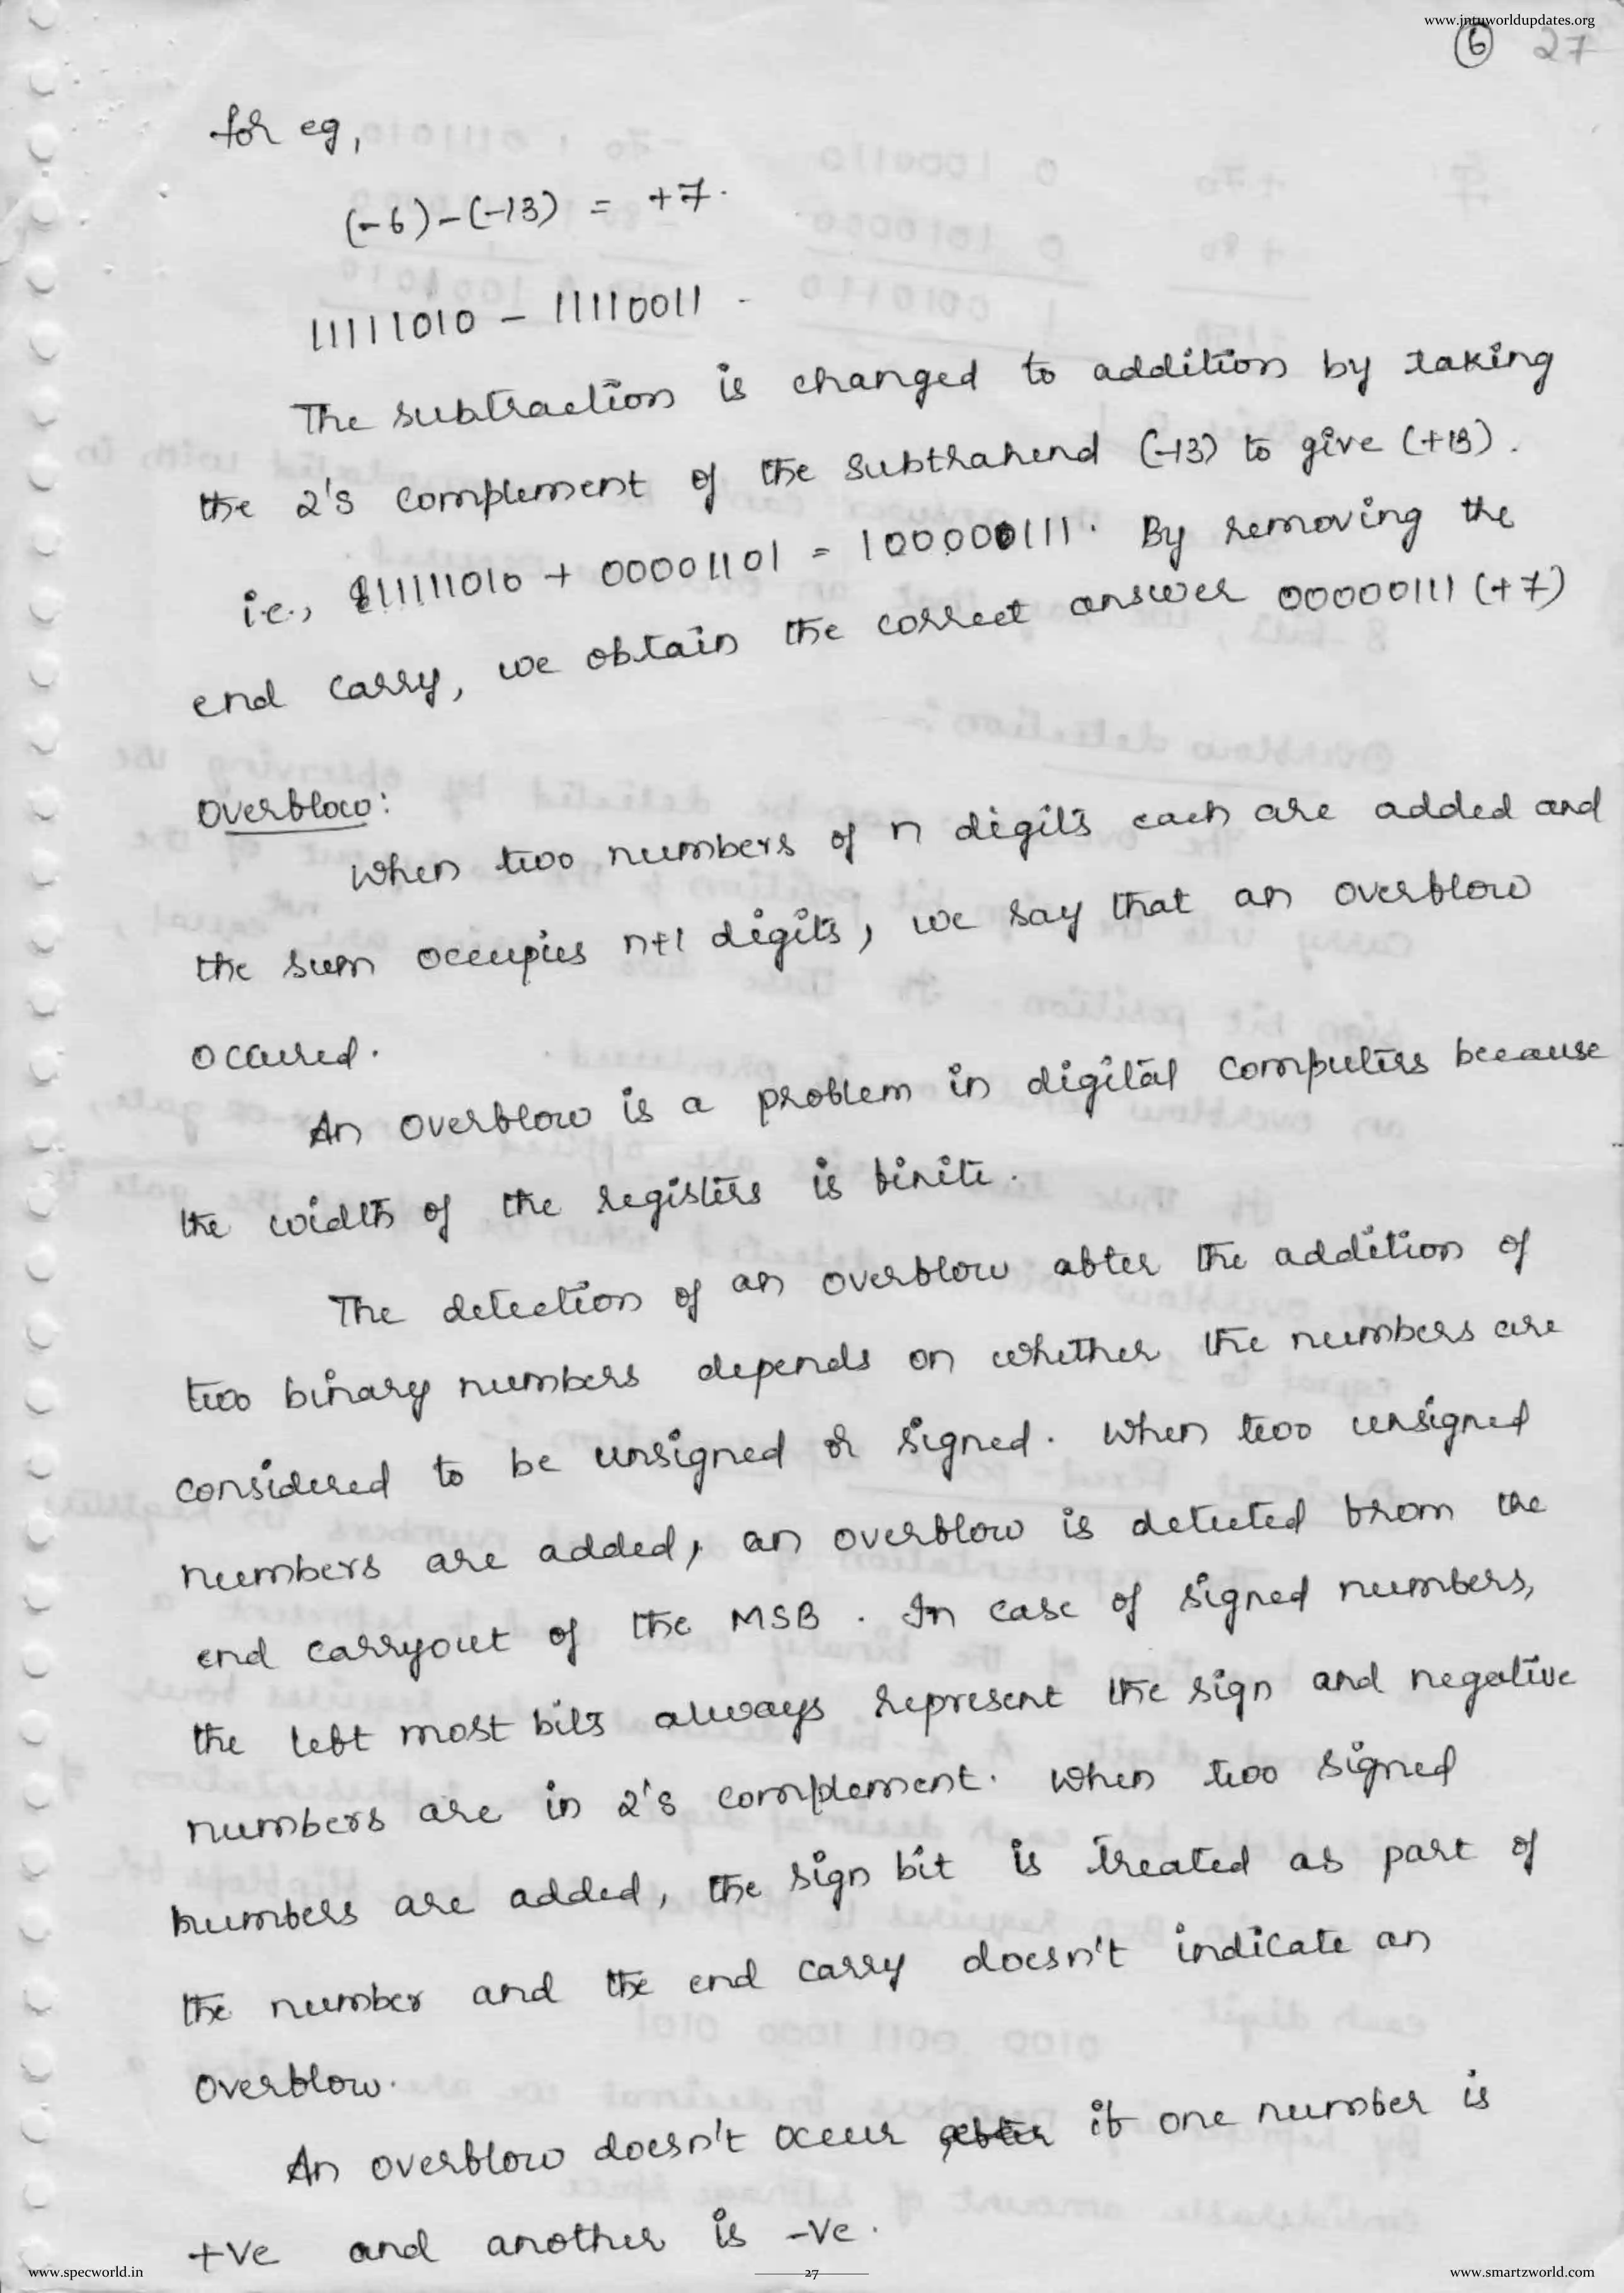 www.jntuworldupdates.org
6 27
for eg,
(-6)-(-13) = +7.
11111010 - 11110011 .
The subtraction is changed to addition by taking
the 2's complement of the subtrahend (-13) to give (+13).
i.e., 11111010 + 00001101 = 100000111. By removing the
end carry, we obtain the correct answer 00000111 (+7)
Overflow:
When two numbers of n digits each are added and
the sum occupies n+1 digits, we say that an overflow
occured.
An overflow is a problem in digital computers because
the width of the registers is finite.
The detection of an overflow after the addition of
two binary numbers depends on whether the numbers are
considered to be unsigned or signed. When two unsigned
numbers are added, an overflow is detected from the
end carryout of the MSB. In case of signed numbers,
the left most bits always represent the sign and negative
numbers are in 2's complement. When two signed
numbers are added, the sign bit is treated as part of
the number and the end carry doesn't indicate an
overflow.
An overflow doesn't occur if one number is
+ve and another is -ve.
www.specworld.in
27
www.smartzworld.com